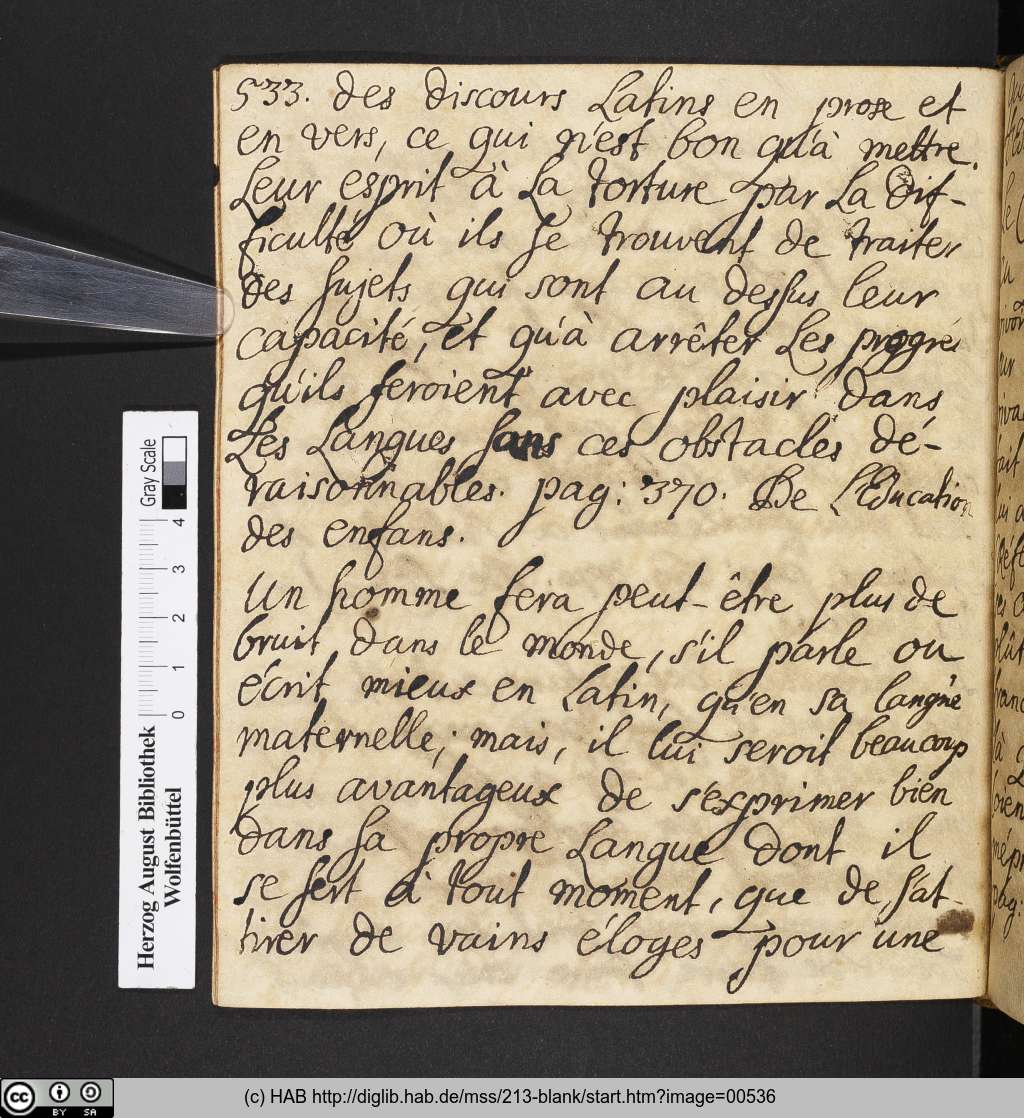 533. des discours Latins en prose et
en vers, ce qui n'est bon qu'à mettre
Leur esprit à La torture par La dif-
ficulté où ils se trouvent de traiter
des sujets qui sont au dessus leur
capacité, et qu'à arrêter Les progrés
qu'ils feroient avec plaisir dans
Les Langues sans ces obstacles dé-
raisonnables. pag: 370. De L'Education
des enfans.
Un homme fera peut-être plus de
bruit dans le monde, s'il parle ou
écrit mieux en Latin, qu'en sa langue
maternelle; mais, il lui seroit beaucoup
plus avantageux de s'exprimer bien
dans sa propre Langue dont il
se sert à tout moment, que de s'at-
tirer de vains éloges pour une
Gray Scale
0 1 2 3 4
Herzog August Bibliothek
Wolfenbüttel
(c) HAB http://diglib.hab.de/mss/213-blank/start.htm?image=00536
cc BY SA